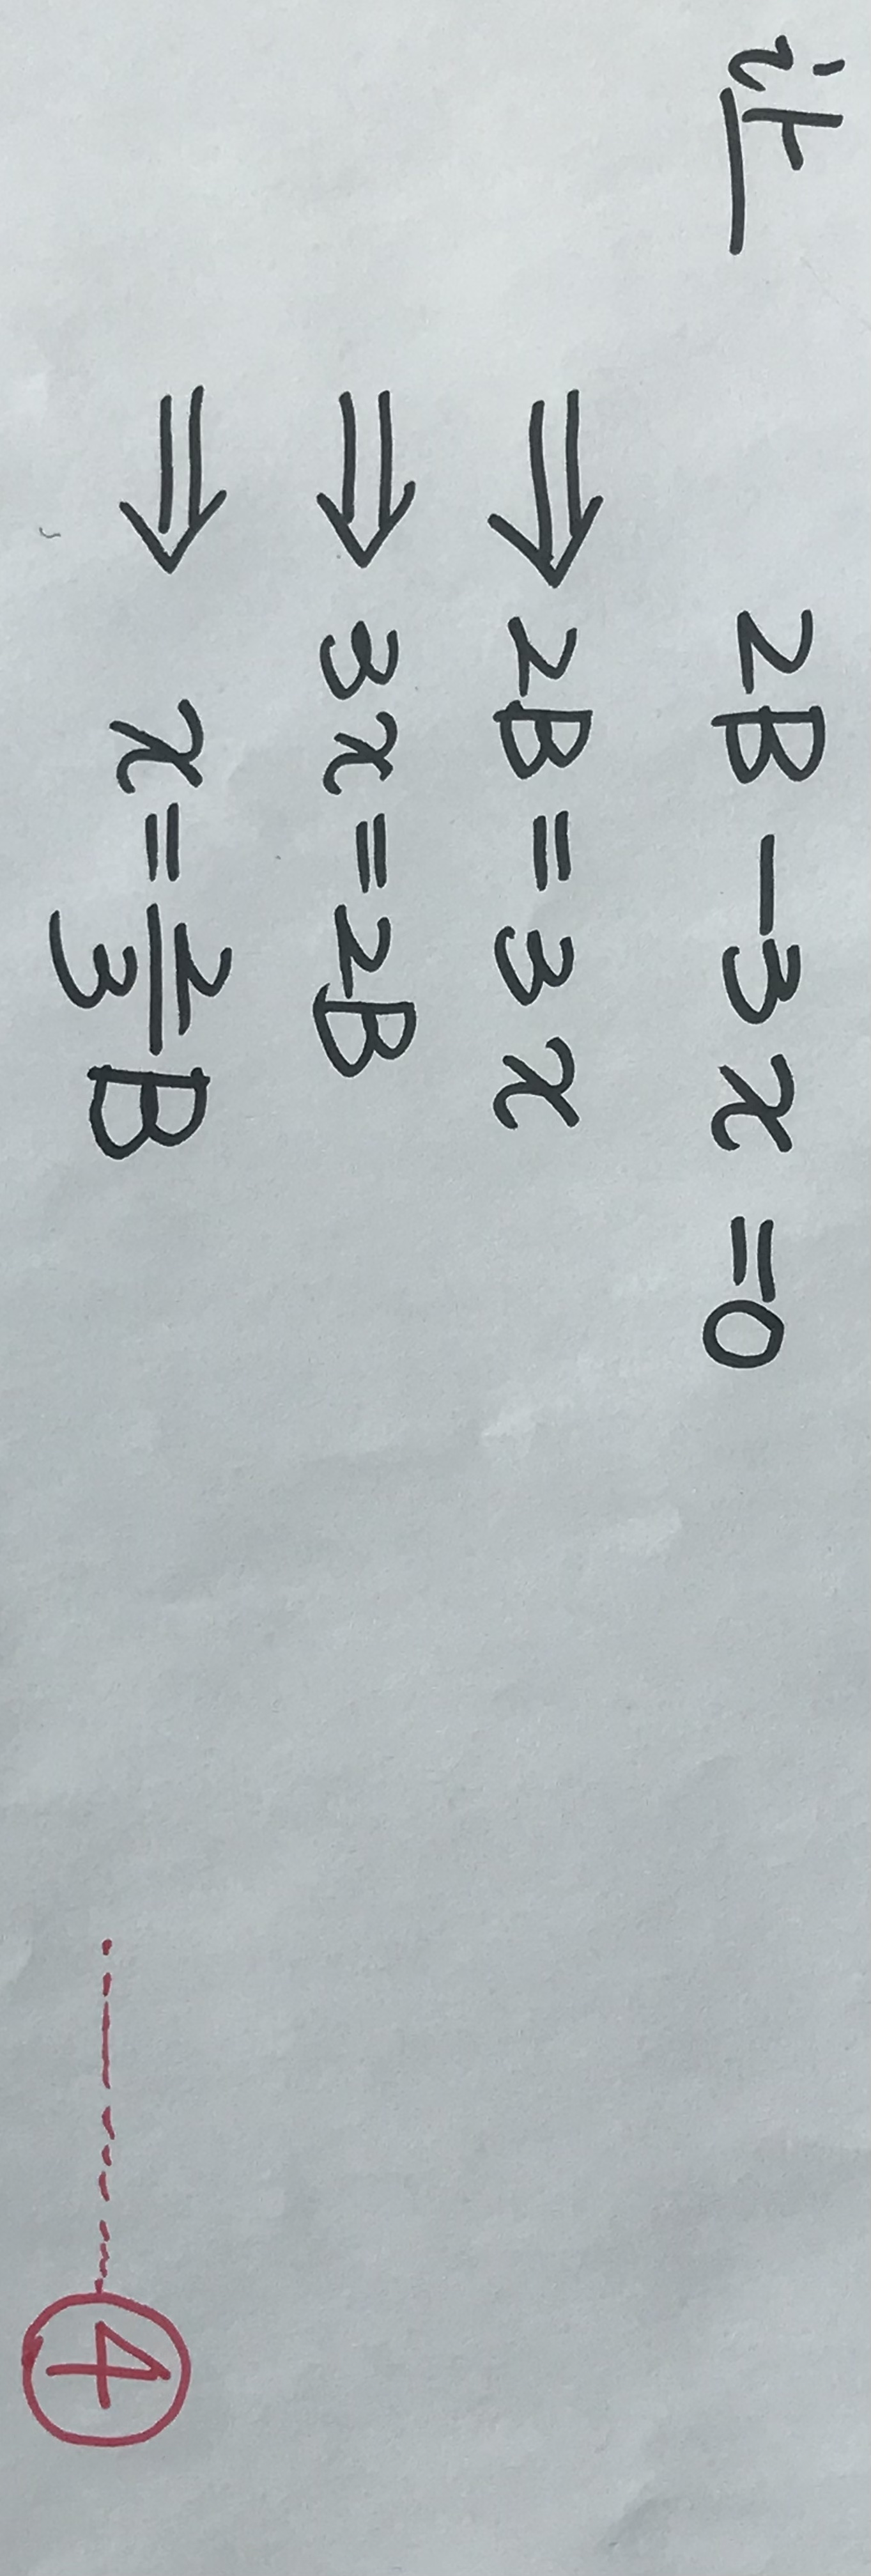 让 2B-3x=0
⇒2B=3x
⇒3x=2B
⇒ x=2/3 B ------④